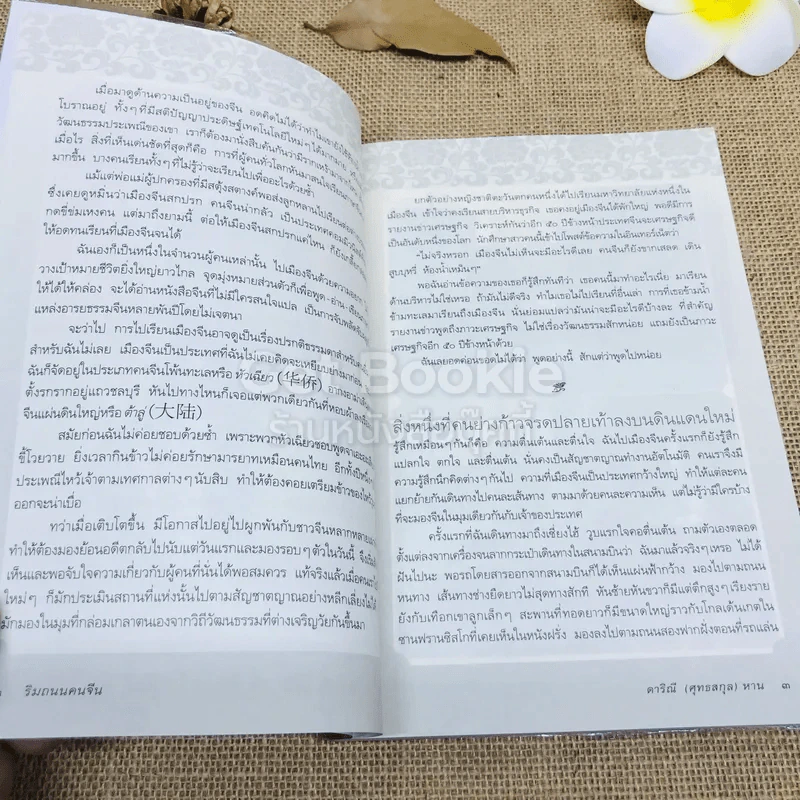 เมื่อมาดูด้านความเป็นอยู่ของจีน อดคิดไม่ได้ว่าทำไมเรายังได้
โบราณอยู่ ทั้งๆที่มีสติปัญญาประดิษฐ์เทคโนโลยีใหม่ๆได้มากมาย
วัฒนธรรมประเพณีของเขา เราก็ต้องมานั่งสืบค้นกันว่ามีรากเหง้ามาจาก
เมื่อไร สิ่งที่เห็นเด่นชัดที่สุดก็คือ การที่ผู้คนทั่วโลกหันมาสนใจเรียนภาษา
มากขึ้น บางคนเรียนทั้งๆที่ไม่รู้ว่าจะเรียนไปเพื่ออะไรด้วยซ้ำ
แม้แต่พ่อแม่ผู้ปกครองที่มีสตุ้งสตางค์พอส่งลูกหลานไปเรียน
ซึ่งเคยดูหมิ่นว่าเมืองจีนสกปรก คนจีนน่ากลัว เป็นประเทศคอมมิวนิสต์
กดขี่ข่มเหงคน แต่มาถึงยามนี้ ต่อให้เมืองจีนสกปรกแค่ไหน ก็ยัง
ให้อดทนเรียนที่เมืองจีนจนได้
ฉันเองก็เป็นหนึ่งในจำนวนผู้คนเหล่านั้น ไปเมืองจีนด้วยความ
วางเป้าหมายชีวิตยิ่งใหญ่ยาวไกล จุดมุ่งหมายส่วนตัวก็เพื่อพูด-อ่าน-เขียน
ให้ได้ให้คล่อง จะได้อ่านหนังสือจีนที่ไม่มีใครสนใจแปล เป็นการจับพลัดจับผลู
แหล่งอารยธรรมจีนหลายพันปีโดยไม่เจตนา
จะว่าไป การไปเรียนเมืองจีนอาจดูเป็นเรื่องปรกติธรรมดาสำหรับคน
สำหรับฉันไม่เลย เมืองจีนเป็นประเทศที่ฉันไม่เคยคิดจะเหยียบย่างมาก่อน
ฉันก็จัดอยู่ในประเภทคนจีนโพ้นทะเลหรือ หัวเฉียว (华侨) อากงอาม่า
ตั้งรกรากอยู่แถวชลบุรี หันไปทางไหนก็เจอแต่พวกเดียวกันที่หอบผ้า
จีนแผ่นดินใหญ่หรือ ต้าลู่ (大陆)
สมัยก่อนฉันไม่ค่อยชอบด้วยซ้ำ เพราะพวกหัวเฉียวชอบพูดจา
ขี้โวยวาย ยิ่งเวลากินข้าวไม่ค่อยรักษามารยาทเหมือนคนไทย อีกทั้งปีหนึ่งๆ
ประเพณีไหว้เจ้าตามเทศกาลต่างๆนับสิบ ทำให้ต้องคอยเตรียมข้าวของไหว้
ออกจะน่าเบื่อ
ทว่าเมื่อเติบโตขึ้น มีโอกาสไปอยู่ไปผูกพันกับชาวจีนหลากหลาย
ทำให้ต้องมองย้อนอดีตกลับไปนับแต่วันแรกและมองรอบๆตัวในวันนี้ จึง
เห็นและพอจับใจความเกี่ยวกับผู้คนที่นั่นได้พอสมควร แท้จริงแล้วเมื่อคน
ใหม่ๆ ก็มักประเมินสถานที่แห่งนั้นไปตามสัญชาตญาณอย่างหลีกเลี่ยงไม่ได้
มักมองในมุมที่กล่อมเกลาตนเองจากวิถีวัฒนธรรมที่ต่างเจริญวัยกันขึ้นมา
ริมถนนคนจีน
ยกตัวอย่างหญิงชาติตะวันตกคนหนึ่งได้ไปเรียนมหาวิทยาลัยแห่งหนึ่งใน
เมืองจีน เข้าใจว่าคงเรียนสายบริหารธุรกิจ เธอคงอยู่เมืองจีนได้พักใหญ่ พอดีมีการ
รายงานข่าวเศรษฐกิจ วิเคราะห์กันว่าอีก ๕๐ ปีข้างหน้าประเทศจีนจะเศรษฐกิจดี
เป็นอันดับหนึ่งของโลก นักศึกษาสาวคนนี้เข้าไปโพสต์ข้อความในอินเทอร์เน็ตว่า
"ไม่จริงหรอก เมืองจีนไม่เห็นจะมีอะไรดีเลย คนจีนก็ยังขากเสลด เดิน
สูบบุหรี่ ห้องน้ำเหม็นๆ"
พอฉันอ่านข้อความของเธอก็รู้สึกทันทีว่า เธอคนนี้มาทำอะไรเนี่ย มาเรียน
ด้านบริหารไม่ใช่เหรอ ถ้ามันไม่ดีจริง ทำไมเธอไม่ไปเรียนที่อื่นเล่า การที่เธอข้ามน้ำ
ข้ามทะเลมาเรียนถึงเมืองจีน นั่นย่อมแปลว่ามันน่าจะมีอะไรดีบ้างละ ที่สำคัญ
รายงานข่าวพูดถึงภาวะเศรษฐกิจ ไม่ใช่เรื่องวัฒนธรรมสักหน่อย แถมยังเป็นภาวะ
เศรษฐกิจอีก ๕๐ ปีข้างหน้าด้วย
ฉันเลยอดค่อนขอดไม่ได้ว่า พูดอย่างนี้ สักแต่ว่าพูดไปหน่อย
GoBookie
ร้านหนังสือกู๊ดนี้
สิ่งหนึ่งที่คนย่างก้าวจรดปลายเท้าลงบนดินแดนใหม่
รู้สึกเหมือนๆกันก็คือ ความตื่นเต้นและตื่นใจ ฉันไปเมืองจีนครั้งแรกก็ยังรู้สึก
แปลกใจ ตกใจ และตื่นเต้น นั่นคงเป็นสัญชาตญาณทำงานอัตโนมัติ คนเราจะมี
ความรู้สึกนึกคิดต่างๆกันไป ความที่เมืองจีนเป็นประเทศกว้างใหญ่ ทำให้แต่ละคน
แยกย้ายกันเดินทางไปคนละเส้นทาง ตามมาด้วยคนละความเห็น แต่ไม่รู้ว่ามีใครบ้าง
ที่จะมองจีนในมุมเดียวกันกับเจ้าของประเทศ
ครั้งแรกที่ฉันเดินทางมาถึงเซี่ยงไฮ้ วูบแรกใจคอตื่นเต้น ถามตัวเองตลอด
ตั้งแต่ลงจากเครื่องจนลากกระเป๋าเดินทางในสนามบินว่า ฉันมาแล้วจริงๆหรอ ไม่ได้
ฝันไปนะ พอรถโดยสารออกจากสนามบินก็ได้เห็นแผ่นฟ้ากว้าง มองไปตามถนน
หนทาง เส้นทางช่างยืดยาวไม่สุดทางสักที หันซ้ายหันขวาก็มีแต่ตึกสูงๆเรียงราย
ยังกับเทือกเขาลูกเล็กๆ สะพานที่ทอดยาวก็มีขนาดใหญ่ราวกับโกลเด้นเกตใน
ซานฟรานซิสโกที่เคยเห็นในหนังฝรั่ง มองลงไปตามถนนสองฟากฝั่งตอนที่รถแล่น
ดาริณี (ศุทธสกุล) หาน ๓